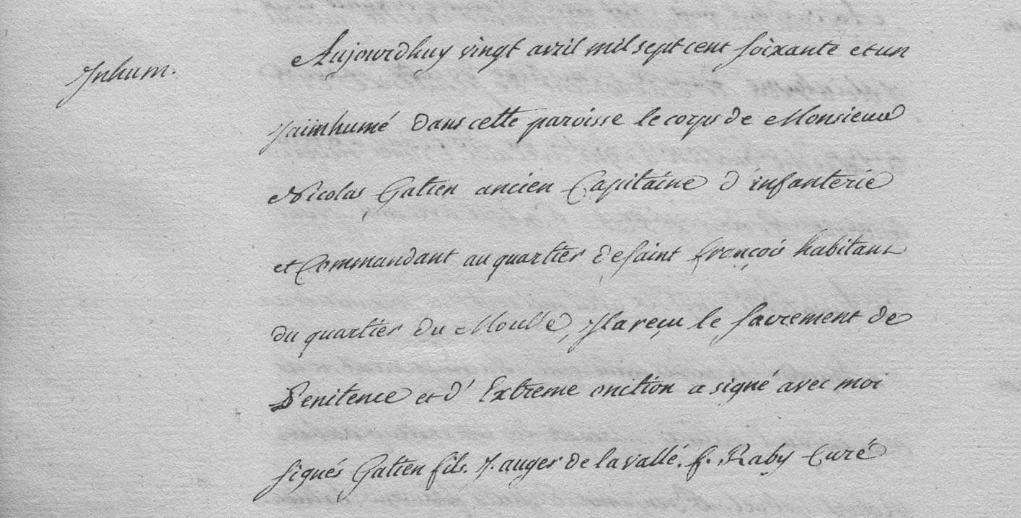 Inhum.
Aujourdhuy vingt avril mil sept cent soixante et un
Jaiinhumé dans cette paroisse le corps de Monsieur
Nicolas Gatien ancien Capitaine d infanterie
et Commandant au quartier de saint françois habitant
du quartier du Moulle, Jl a reçu le sacrement de
Penitence et d' Extreme onction a signé avec moi
signés Gatien fils. J. auger de la vallé. f. Raby Curé